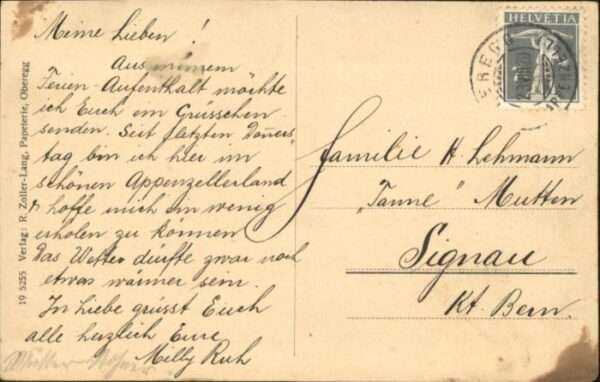 Meine Lieben!
Aus meinem
Ferien-Aufenthalt möchte
ich Euch ein Grüsschen
senden. Seit letzten Donners-
tag bin ich hier im
schönen Appenzellerland
& hoffe mich ein wenig
erholen zu können
Das Wetter dürfte zwar noch
etwas wärmer sein.
In Liebe grüsst Euch
alle herzlich Eure
Milly Ruh
Familie H. Lehmann
"Tanne" Mutten
Signau
Kt. Bern.
HELVETIA
19 5255 Verlag: R. Zoller-Lang, Papeterie, Oberegg